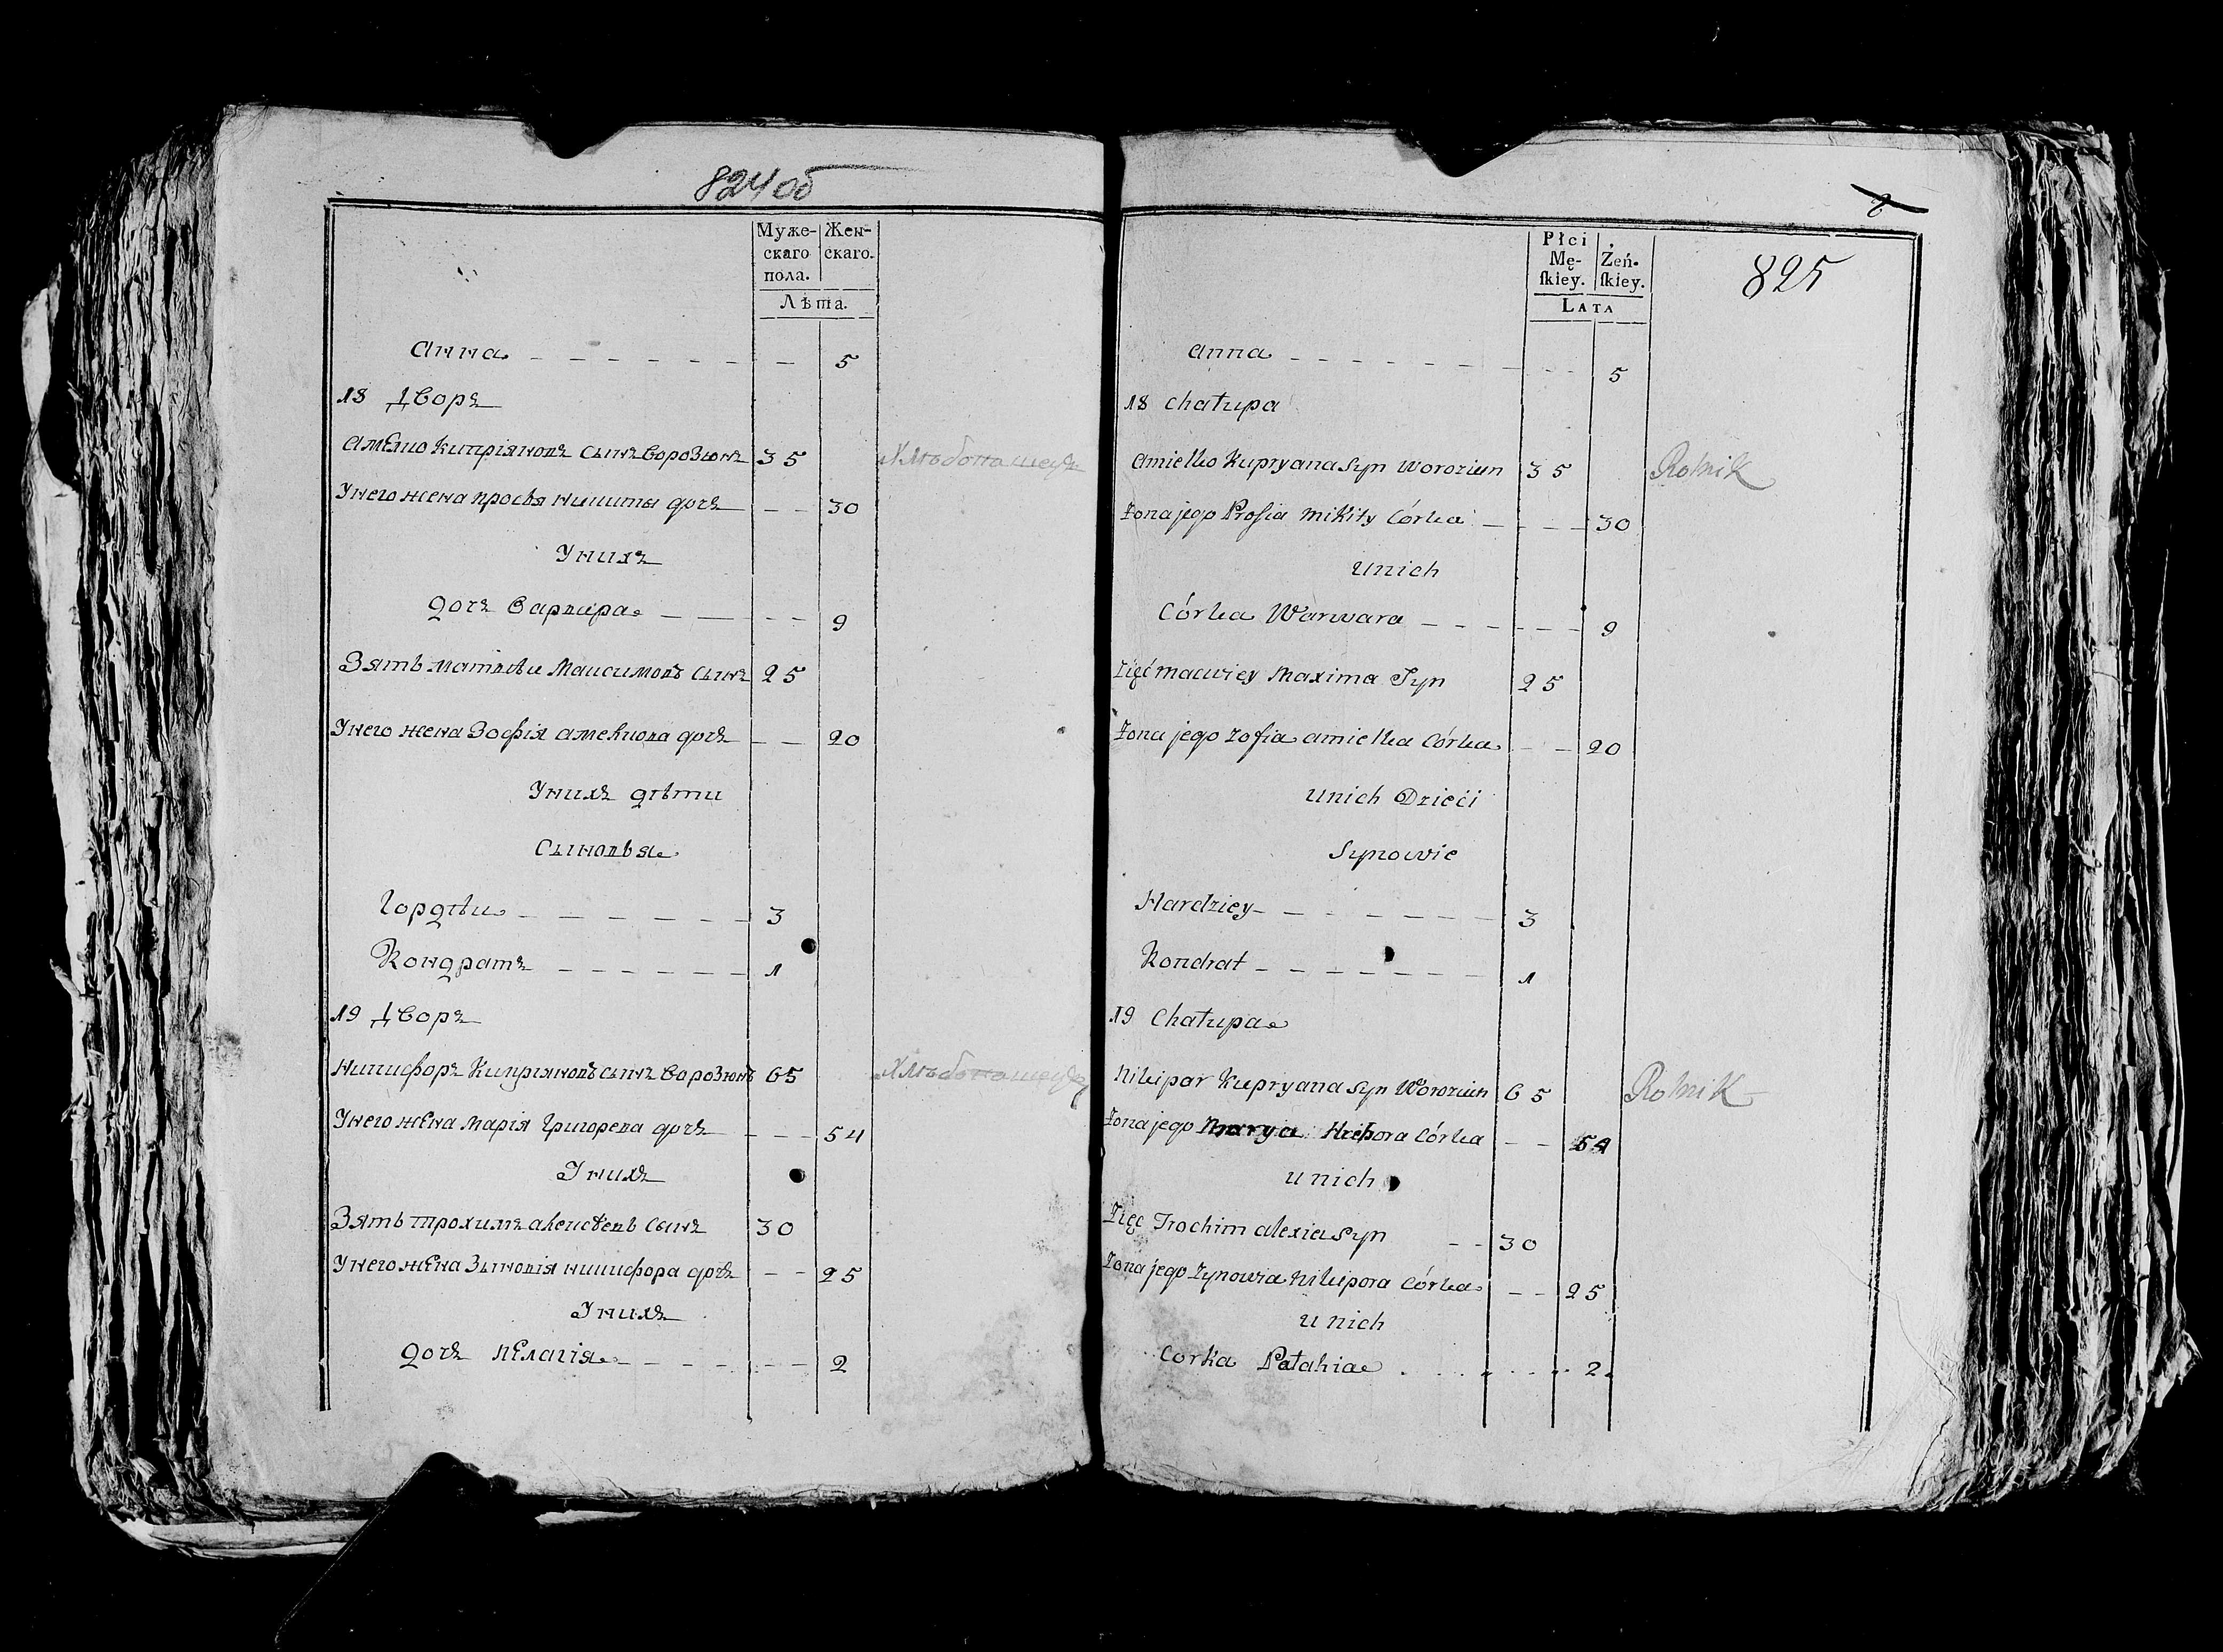 824 об
Муже- Жен-
скаго скаго.
пола.
Лѣта.
Анна 5
18 Дворъ
Амелко Кипріяновъ сынъ Ворозюнъ 35 Хлѣбопашецъ
У него жена Просія Никиты дочъ 30
У нихъ
дочъ Варвара 9
Зять Матвѣи Максимовъ сынъ 25
У него жена Зофія Амелкова дочъ 20
У нихъ дѣти
Сыновья
Гордѣи 3
Кондратъ 1
19 Дворъ
Никифоръ Кипріяновъ сынъ Ворозюнъ 65 Хлѣбопашецъ
У него жена Марія Григорева дочъ 54
У нихъ
Зять Трохимъ Алексѣевъ сынъ 30
У него жена Зыновія Никифора дочъ 25
У нихъ
дочъ Пелагія 2
825
Płci Żeń-
Mę- ſkiey.
ſkiey.
LATA
Anna 5
18 Chałupa
Amielko Kupryana Syn Woroziun 35 Rolnik
Żona jego Prosia Mikity Córka 30
U nich
Córka Warwara 9
Zięć Maciey Maxima Syn 25
Żona jego Zofia Amielka Córka 20
U nich Dzieci
Synowie
Hardziey 3
Kondrat 1
19 Chałupa
Nikipar Kupryana Syn Woroziun 65 Rolnik
Żona jego Marya Hrehora Córka 54
U nich
Zięc Trochim Alexia Syn 30
Żona jego Zynowia Nikipora Córka 25
U nich
Corka Pałahia 2